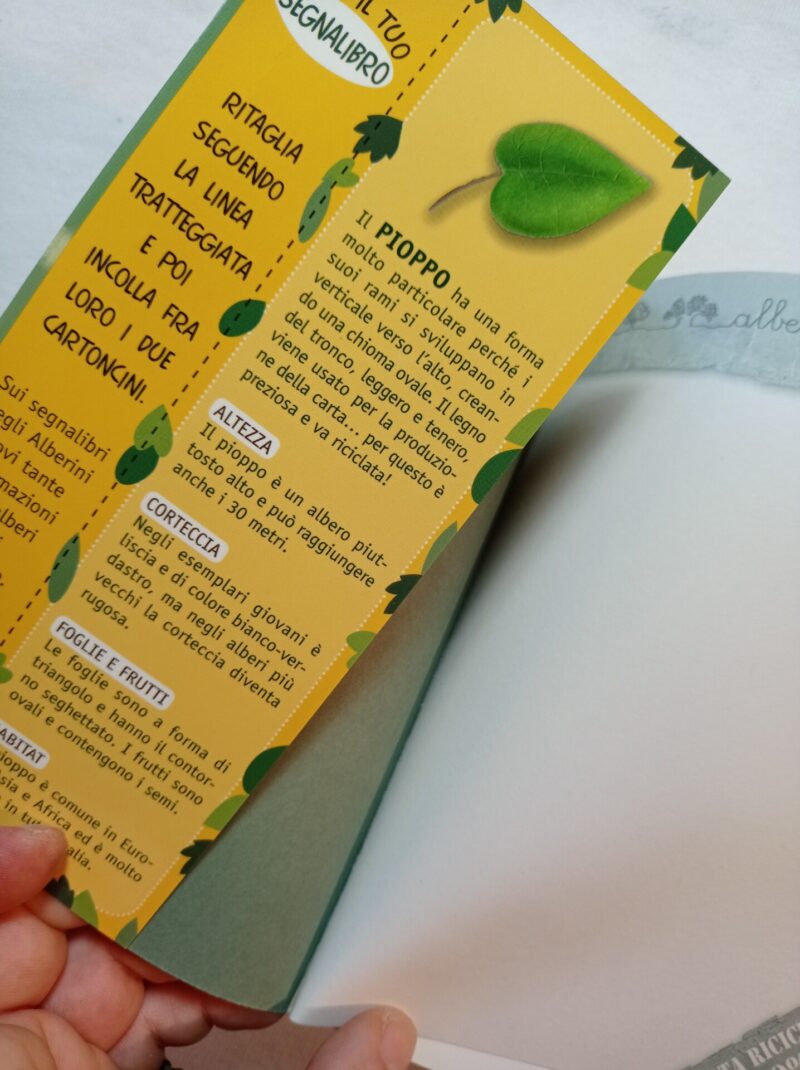 IL TUO
SEGNALIBRO
RITAGLIA
SEGUENDO
LA LINEA
TRATTEGGIATA
E POI
INCOLLA FRA
LORO I DUE
CARTONCINI.
Sui segnalibri
egli Alberini
ovi tante
mazioni
lberi
Il PIOPPO ha una forma
molto particolare perché i
suoi rami si sviluppano in
verticale verso l'alto, crean-
do una chioma ovale. Il legno
del tronco, leggero e tenero,
viene usato per la produzio-
ne della carta... per questo è
preziosa e va riciclata!
ALTEZZA
Il pioppo è un albero piut-
tosto alto e può raggiungere
anche i 30 metri.
CORTECCIA
Negli esemplari giovani è
liscia e di colore bianco-ver-
dastro, ma negli alberi più
vecchi la corteccia diventa
rugosa.
FOGLIE E FRUTTI
Le foglie sono a forma di
triangolo e hanno il contor-
no seghettato. I frutti sono
ovali e contengono i semi.
ABITAT
pioppo è comune in Euro-
sia e Africa ed è molto
in tu alia.
albe
TA RICIC